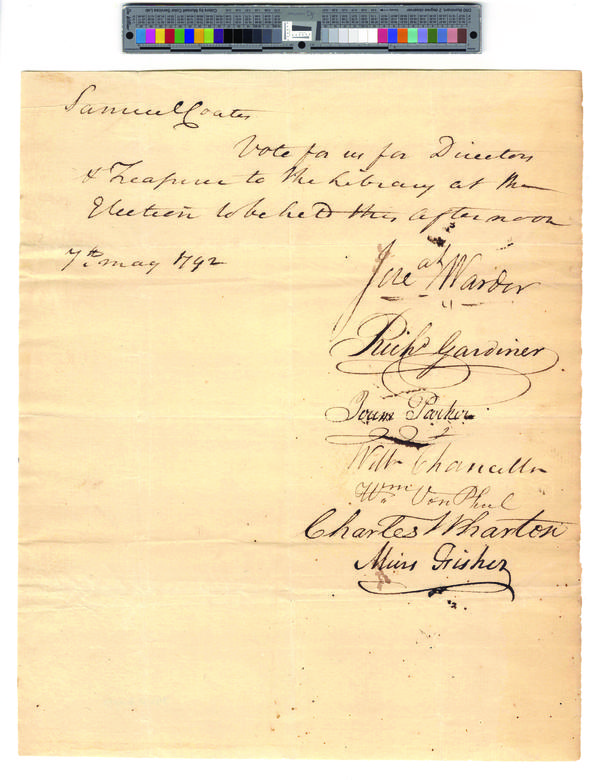 Samuel Coates
Vote for us for Directors
& Treasurer to the Library at the
Election to be held this afternoon
7th. may 1792
Jereah Warder
Richd Gardiner
Parker
Willm Chancellor
Wm Von Phul
Charles Wharton
Miers Fisher